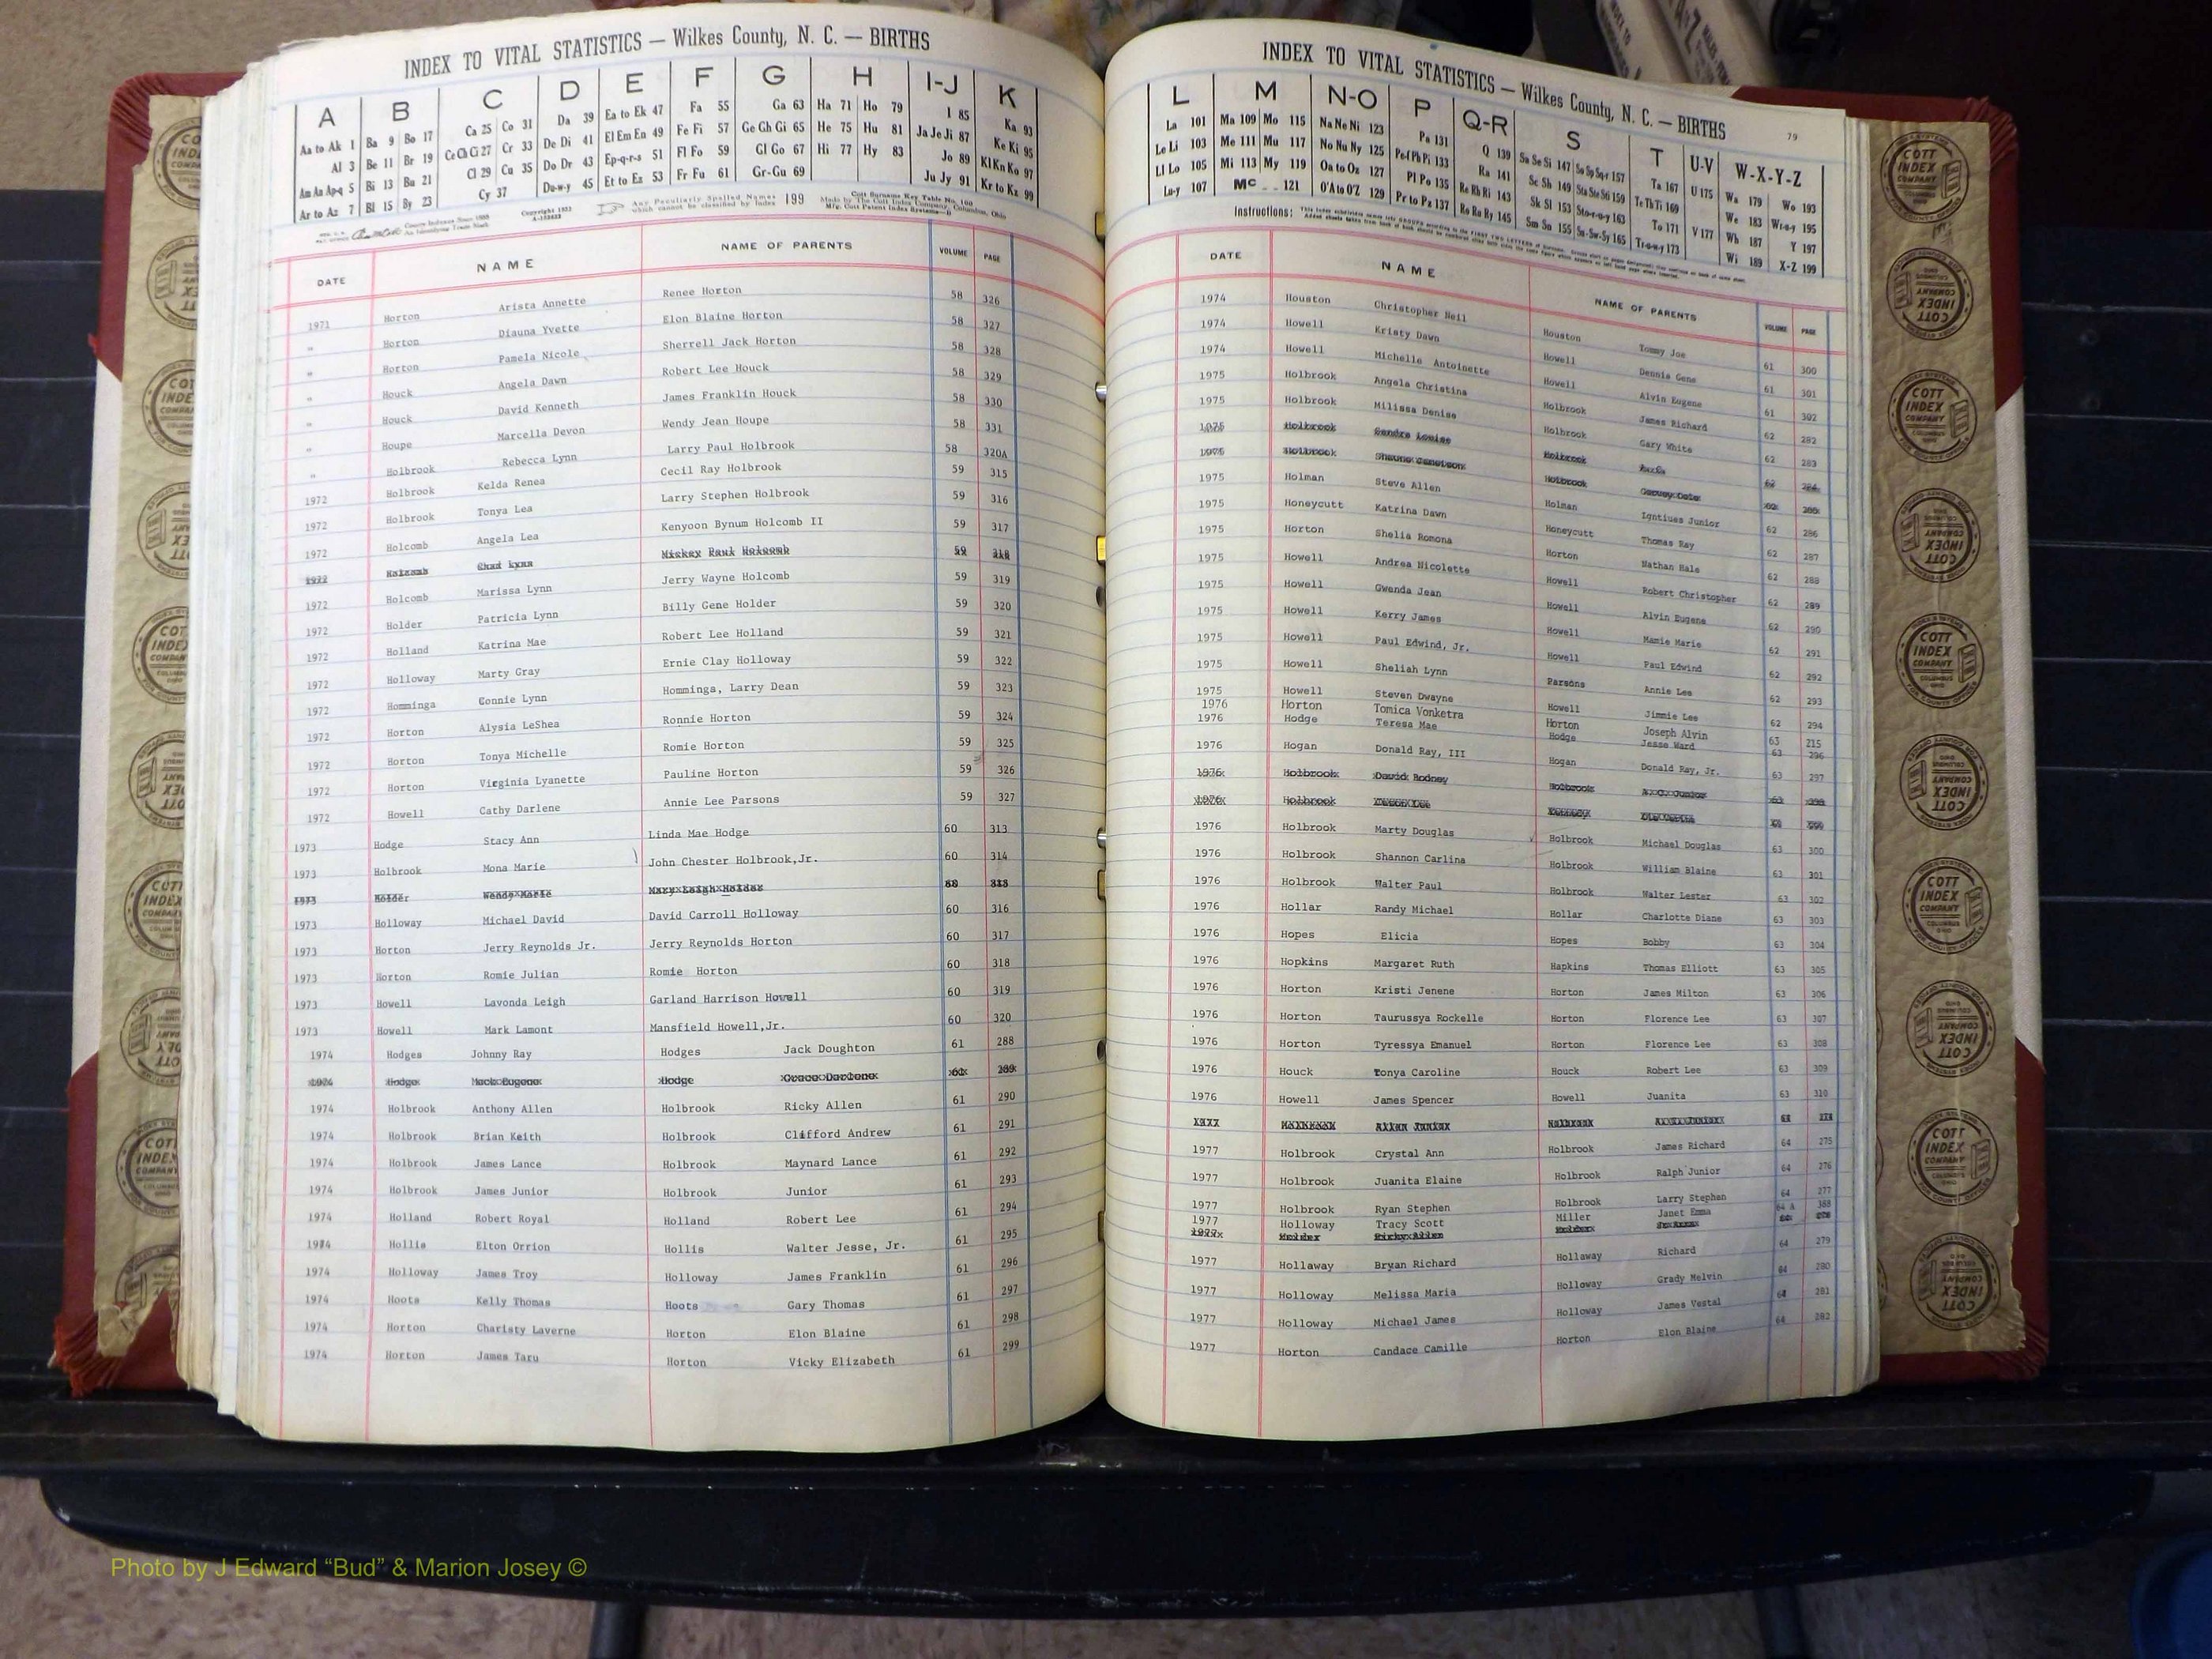 INDEX TO VITAL STATISTICS — Wilkes County, N. C. — BIRTHS
A B C D E F G H I-J K
Aa to Ak 1 Ba 9 Bo 17 Ca 25 Co 31 Da 39 Ea to Ek 47 Fa 55 Ga 63 Ha 71 Ho 79 I 85 Ka 93
Al 3 Be 11 Br 19 Ce Ch Ci 27 Cr 33 De Di 41 El Em En 49 Fe Fi 57 Ge Gh Gi 65 He 75 Hu 81 Ja Je Ji 87 Ke Ki 95
Am An Ap-q 5 Bi 13 Bu 21 Cl 29 Cu 35 Do Dr 43 Ep-q-r-s 51 Fl Fo 59 Gl Go 67 Hi 77 Hy 83 Jo 89 Kl Kn Ko 97
Ar to Az 7 Bl 15 By 23 Cy 37 Du-w-y 45 Et to Ez 53 Fr Fu 61 Gr-Gu 69 Ju Jy 91 Kr to Kz 99
Any Peculiarly Spelled Names which cannot be classified by Index 199
DATE NAME NAME OF PARENTS VOLUME PAGE
1971 Horton Arista Annette Renee Horton 58 326
" Horton Diauna Yvette Elon Blaine Horton 58 327
" Horton Pamela Nicole Sherrell Jack Horton 58 328
" Houck Angela Dawn Robert Lee Houck 58 329
" Houck David Kenneth James Franklin Houck 58 330
" Houpe Marcella Devon Wendy Jean Houpe 58 331
" Holbrook Rebecca Lynn Larry Paul Holbrook 58 320A
1972 Holbrook Kelda Renea Cecil Ray Holbrook 59 315
1972 Holbrook Tonya Lea Larry Stephen Holbrook 59 316
1972 Holcomb Angela Lea Kenyoon Bynum Holcomb II 59 317
1972 Holcomb Chad Lynn Mickey Paul Holcomb 59 318
1972 Holcomb Marissa Lynn Jerry Wayne Holcomb 59 319
1972 Holder Patricia Lynn Billy Gene Holder 59 320
1972 Holland Katrina Mae Robert Lee Holland 59 321
1972 Holloway Marty Gray Ernie Clay Holloway 59 322
1972 Homminga Connie Lynn Homminga, Larry Dean 59 323
1972 Horton Alysia LeShea Ronnie Horton 59 324
1972 Horton Tonya Michelle Romie Horton 59 325
1972 Horton Virginia Lyanette Pauline Horton 59 326
1972 Howell Cathy Darlene Annie Lee Parsons 59 327
1973 Hodge Stacy Ann Linda Mae Hodge 60 313
1973 Holbrook Mona Marie John Chester Holbrook,Jr. 60 314
1973 Holder Wendy Marie Mary Leigh Holder
1973 Holloway Michael David David Carroll Holloway 60 316
1973 Horton Jerry Reynolds Jr. Jerry Reynolds Horton 60 317
1973 Horton Romie Julian Romie Horton 60 318
1973 Howell Lavonda Leigh Garland Harrison Howell 60 319
1973 Howell Mark Lamont Mansfield Howell,Jr. 60 320
1974 Hodges Johnny Ray Hodges Jack Doughton 61 288
1974 Hodge Mack Eugene Hodge Grace Darlene 61 289
1974 Holbrook Anthony Allen Holbrook Ricky Allen 61 290
1974 Holbrook Brian Keith Holbrook Clifford Andrew 61 291
1974 Holbrook James Lance Holbrook Maynard Lance 61 292
1974 Holbrook James Junior Holbrook Junior 61 293
1974 Holland Robert Royal Holland Robert Lee 61 294
1974 Hollis Elton Orrion Hollis Walter Jesse, Jr. 61 295
1974 Holloway James Troy Holloway James Franklin 61 296
1974 Hoots Kelly Thomas Hoots Gary Thomas 61 297
1974 Horton Charisty Laverne Horton Elon Blaine 61 298
1974 Horton James Taru Horton Vicky Elizabeth 61 299
INDEX TO VITAL STATISTICS — Wilkes County, N. C. — BIRTHS 79
L M N-O P Q-R S T U-V W-X-Y-Z
La 101 Ma 109 Mo 115 Na Ne Ni 123 Pa 131 Q 139 Sa Se Si 147 So Sp Sq-r 157 Ta 167 U 175 Wa 179 Wo 193
Le Li 103 Me 111 Mu 117 No Nu Ny 125 Pe-f Ph Pi 133 Ra 141 Sc Sh 149 Sta Ste Sti 159 Te Th Ti 169 V 177 We 183 Wr-u-y 195
Ll Lo 105 Mi 113 My 119 Oa to Oz 127 Pl Po 135 Re Rh Ri 143 Sk Sl 153 Sto-r-u-y 163 To 171 Wh 187 Y 197
Lu-y 107 Mc 121 O'A to O'Z 129 Pr to Pu 137 Ro Ru Ry 145 Sm Sn 155 Su-Sw-Sy 165 Tr-u-w-y 173 Wi 189 X-Z 199
Instructions:
DATE NAME NAME OF PARENTS VOLUME PAGE
1974 Houston Christopher Neil Houston Tommy Joe 61 300
1974 Howell Kristy Dawn Howell Dennis Gene 61 301
1974 Howell Michelle Antoinette Howell Alvin Eugene 61 302
1975 Holbrook Angela Christina Holbrook James Richard 62 282
1975 Holbrook Milissa Denise Holbrook Gary White 62 283
1975 Holbrook Sandra Louise Holbrook 62 284
Holbrook Holbrook
1975 Holman Steve Allen Holman Igntiues Junior 62 286
1975 Honeycutt Katrina Dawn Honeycutt Thomas Ray 62 287
1975 Horton Shelia Romona Horton Nathan Hale 62 288
1975 Howell Andrea Nicolette Howell Robert Christopher 62 289
1975 Howell Gwenda Jean Howell Alvin Eugene 62 290
1975 Howell Kerry James Howell Mamie Marie 62 291
1975 Howell Paul Edwind, Jr. Howell Paul Edwind 62 292
1975 Howell Sheliah Lynn Parsons Annie Lee 62 293
1975 Howell Steven Dwayne Howell Jimmie Lee 62 294
1976 Horton Tomica Vonketra Horton Joseph Alvin 63 215
1976 Hodge Teresa Mae Hodge Jesse Ward 63 296
1976 Hogan Donald Ray, III Hogan Donald Ray, Jr. 63 297
1976 Holbrook David Rodney Holbrook A. C. Junior 63
1976 Holbrook
1976 Holbrook Marty Douglas Holbrook Michael Douglas 63 300
1976 Holbrook Shannon Carlina Holbrook William Blaine 63 301
1976 Holbrook Walter Paul Holbrook Walter Lester 63 302
1976 Hollar Randy Michael Hollar Charlotte Diane 63 303
1976 Hopes Elicia Hopes Bobby 63 304
1976 Hopkins Margaret Ruth Hapkins Thomas Elliott 63 305
1976 Horton Kristi Jenene Horton James Milton 63 306
1976 Horton Taurussya Rockelle Horton Florence Lee 63 307
1976 Horton Tyressya Emanuel Horton Florence Lee 63 308
1976 Houck Tonya Caroline Houck Robert Lee 63 309
1976 Howell James Spencer Howell Juanita 63 310
Allen Junior Holbrook
1977 Holbrook Crystal Ann Holbrook James Richard 64 275
1977 Holbrook Juanita Elaine Holbrook Ralph Junior 64 276
1977 Holbrook Ryan Stephen Holbrook Larry Stephen 64 277
1977 Holloway Tracy Scott Miller Janet Emma 64 A 388
1977 Holder Ricky Allen Holder
1977 Hollaway Bryan Richard Hollaway Richard 64 279
1977 Holloway Melissa Maria Holloway Grady Melvin 64 280
1977 Holloway Michael James Holloway James Vestal 64 281
1977 Horton Candace Camille Horton Elon Blaine 64 282
COTT INDEX COMPANY
Photo by J Edward “Bud” & Marion Josey ©